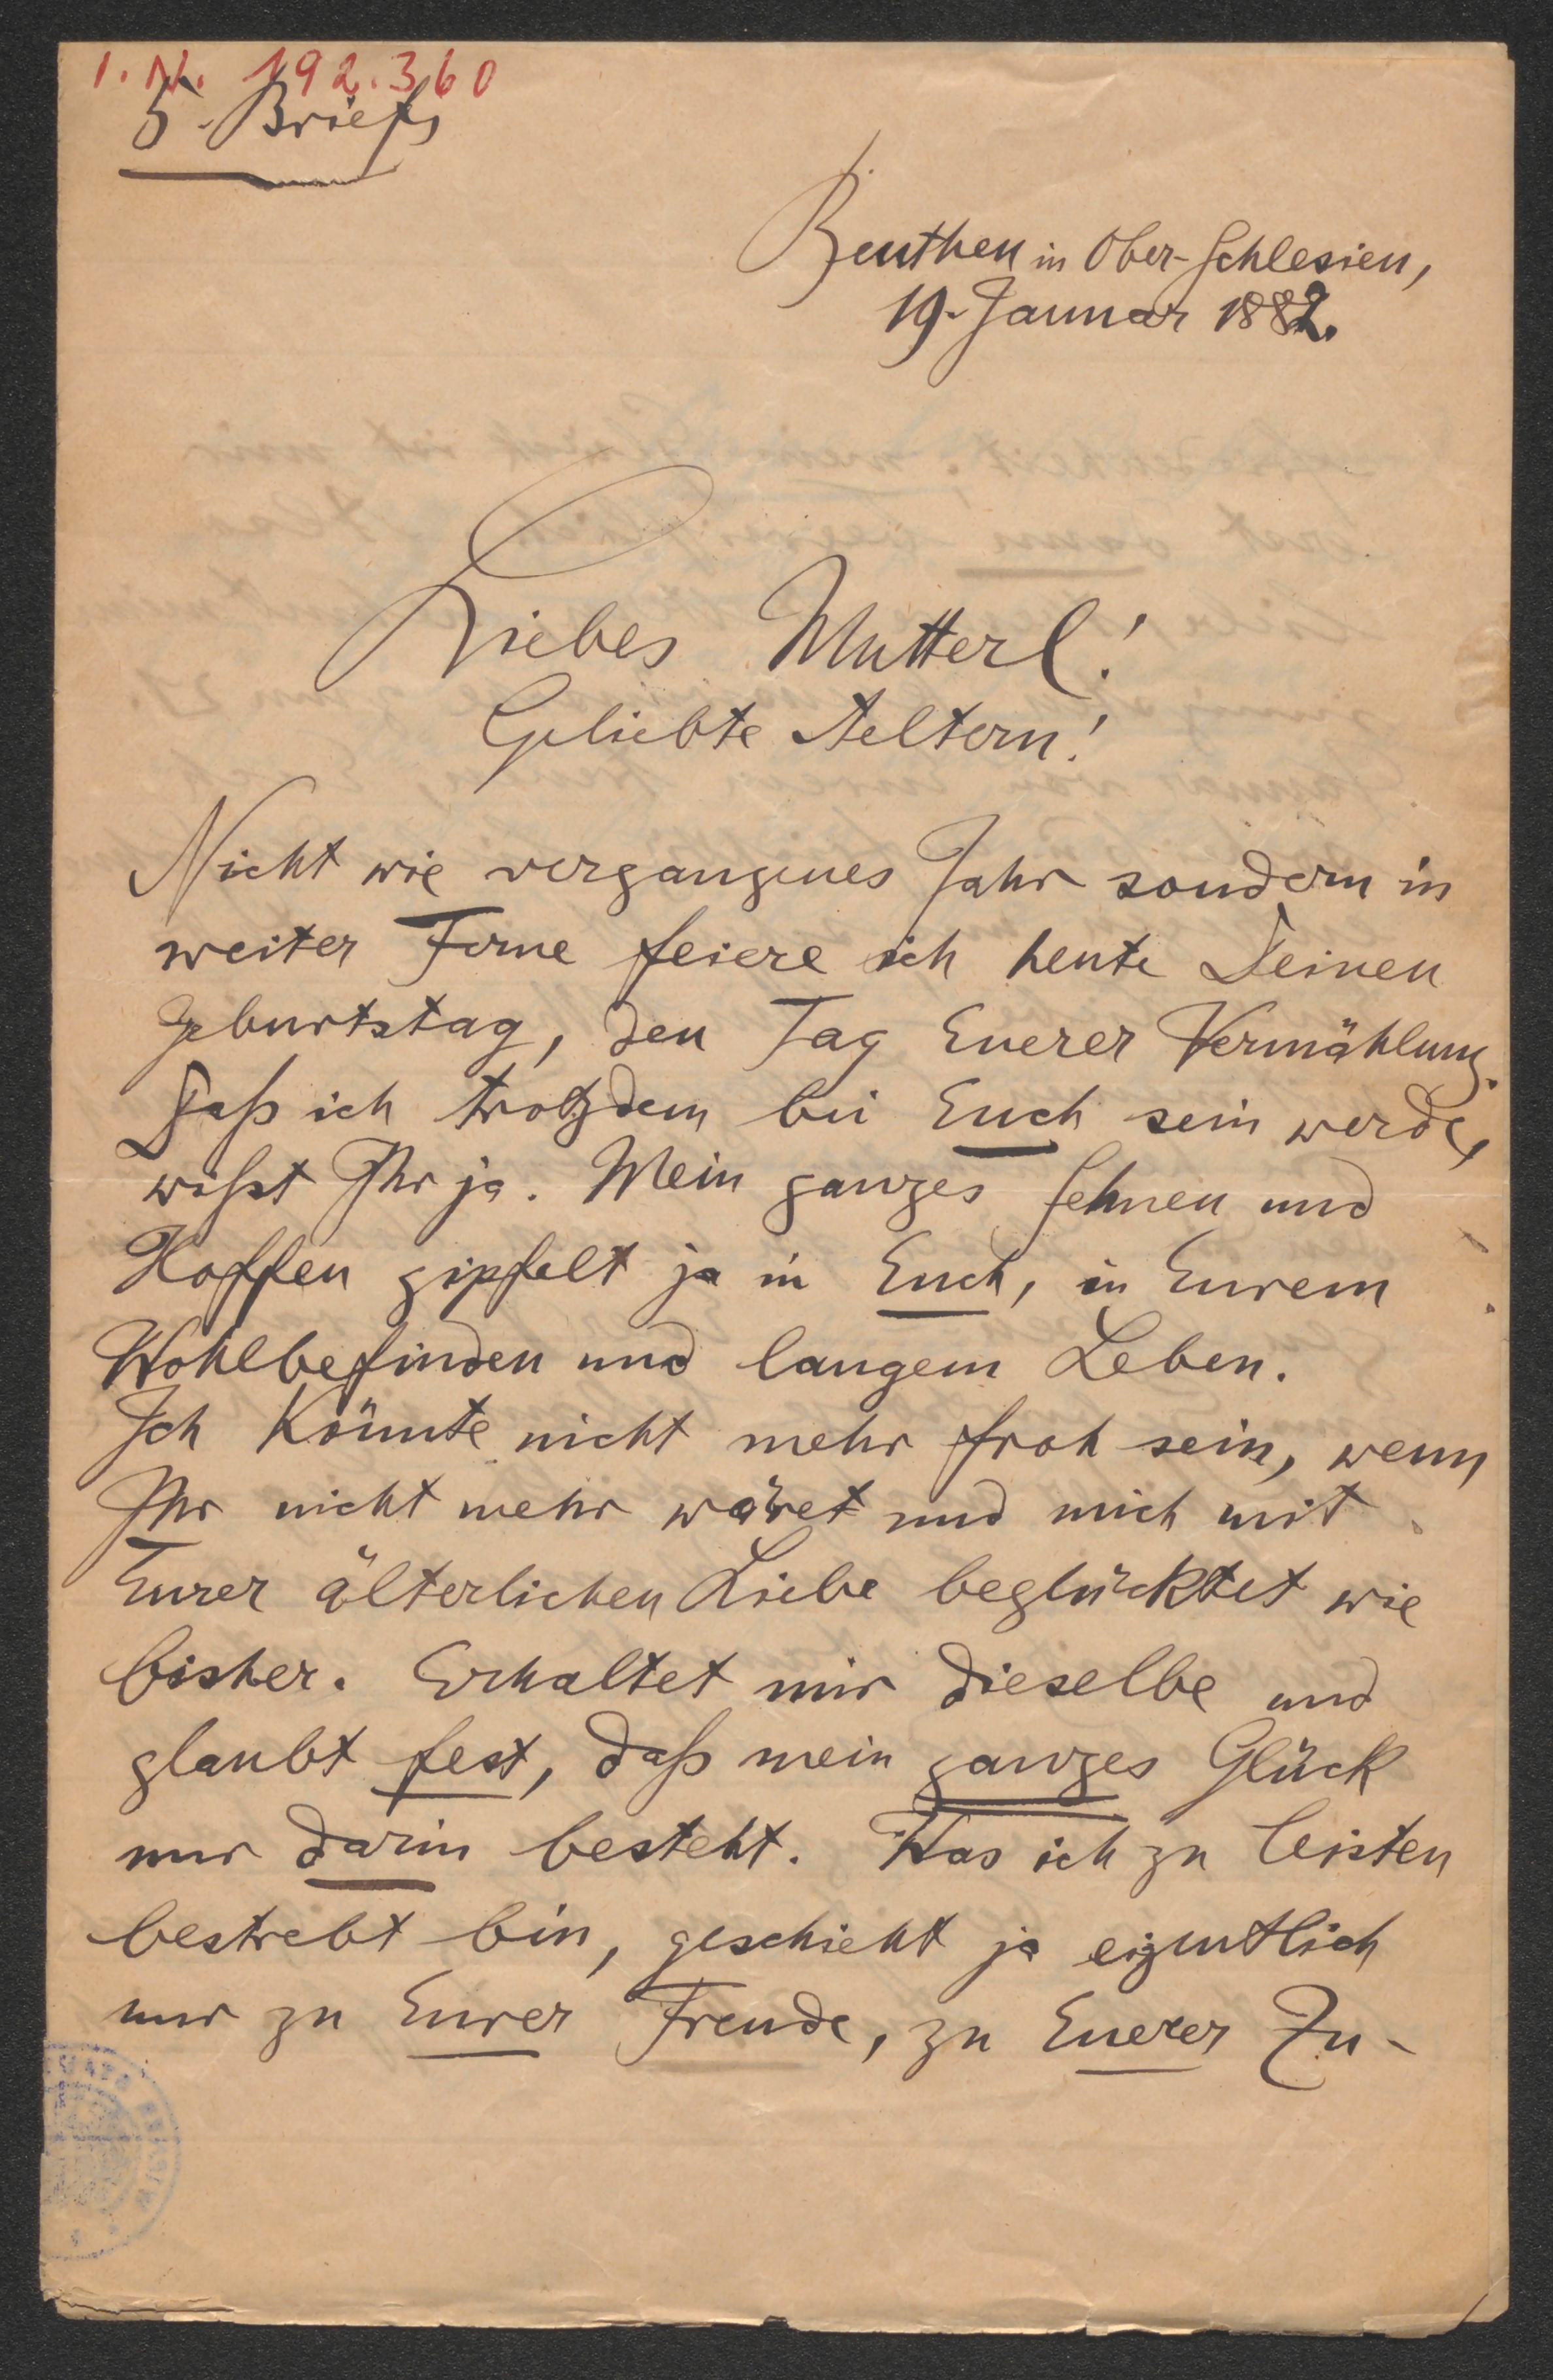 I. N. 192.360
5 Briefe
Beuthen in Ober-Schlesien,
19. Januar 1882.
Liebes Mutterl!
Geliebte Aeltern!
Nicht wie vergangenes Jahr sondern in
weiter Ferne feiere ich heute Deinen
Geburtstag, den Tag Euerer Vermählung.
Daß ich trotzdem bei Euch sein werde,
wißt Ihr ja. Mein ganzes Sehnen und
Hoffen gipfelt ja in Euch, in Eurem
Wohlbefinden und langem Leben.
Ich könnte nicht mehr froh sein, wenn
Ihr nicht mehr wäret und mich mit
Eurer älterlichen Liebe beglücktet wie
bisher. Erhaltet mir dieselbe und
glaubt fest, daß mein ganzes Glück
nur darin besteht. Was ich zu leisten
bestrebt bin, geschieht ja eigentlich
nur zu Eurer Freude, zu Euerer Zu-